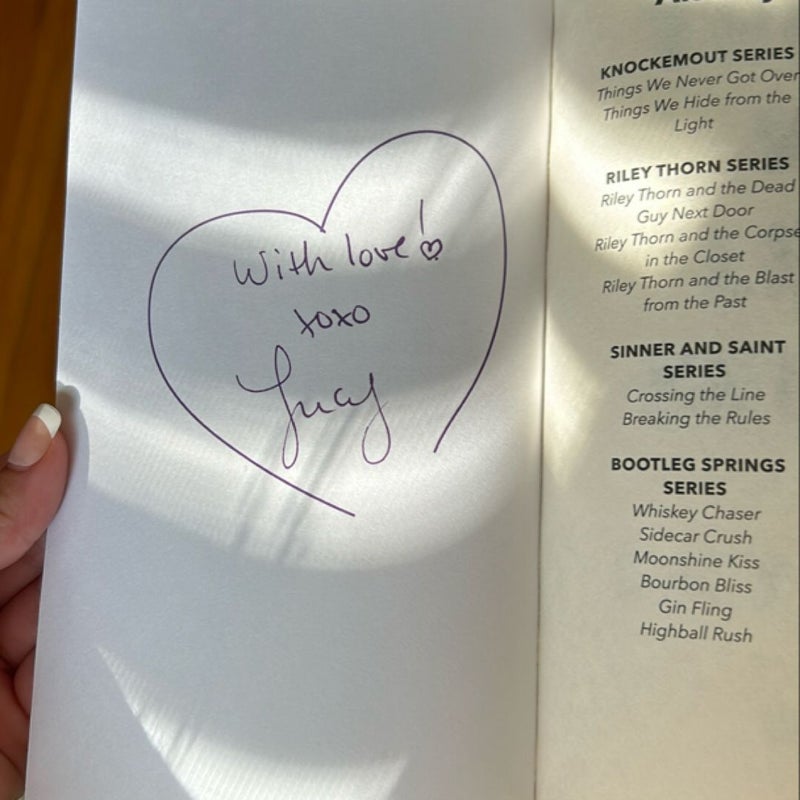 With love!
xoxo
Lucy
KNOCKEMOUT SERIES
Things We Never Got Over
Things We Hide from the
Light
RILEY THORN SERIES
Riley Thorn and the Dead
Guy Next Door
Riley Thorn and the Corpse
in the Closet
Riley Thorn and the Blast
from the Past
SINNER AND SAINT
SERIES
Crossing the Line
Breaking the Rules
BOOTLEG SPRINGS
SERIES
Whiskey Chaser
Sidecar Crush
Moonshine Kiss
Bourbon Bliss
Gin Fling
Highball Rush